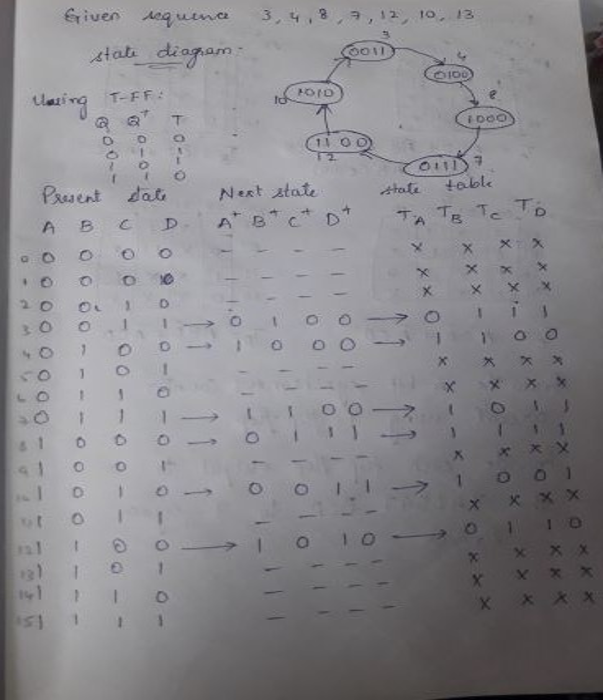 Given sequence 3, 4, 8, 7, 12, 10, 13
state diagram-
3
0011
4
0100
8
1000
10 1010
1100
12
0111 7
Using T-FF:
Q Q+ T
0 0 0
0 1 1
1 0 1
1 1 0
Present state Next state state table
A B C D A+ B+ C+ D+ TA TB TC TD
0 0 0 0 0 - - - - x x x x
1 0 0 0 - - - - x x x x
2 0 0 1 0 - - - - x x x x
3 0 0 1 1 → 0 1 0 0 → 0 1 1 1
4 0 1 0 0 → 1 0 0 0 → 1 1 0 0
5 0 1 0 1 - - - - x x x x
6 0 1 1 0 - - - - x x x x
7 0 1 1 1 → 1 1 0 0 → 1 0 1 1
8 1 0 0 0 → 0 1 1 1 → 1 1 1 1
9 1 0 0 1 - - - - x x x x
10 1 0 1 0 → 0 0 1 1 → 1 0 0 1
11 1 0 1 1 - - - - x x x x
12 1 1 0 0 → 1 0 1 0 → 0 1 1 0
13 1 1 0 1 - - - - x x x x
14 1 1 1 0 - - - - x x x x
15 1 1 1 1 - - - - x x x x